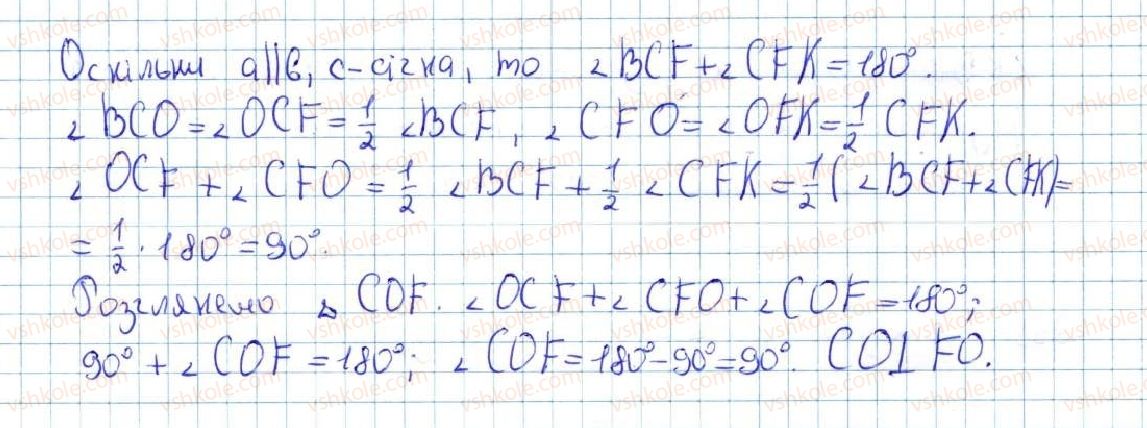 Оскільки a||b, c-січна, то ∠BCF+∠CFK=180°.
∠BCO=∠OCF=1/2 ∠BCF, ∠CFO=∠OFK=1/2 CFK.
∠OCF+∠CFO=1/2 ∠BCF+1/2 ∠CFK=1/2(∠BCF+∠CFK)=
=1/2·180°=90°.
Розглянемо △COF. ∠OCF+∠CFO+∠COF=180°;
90°+∠COF=180°; ∠COF=180°-90°=90°. CO⊥FO.